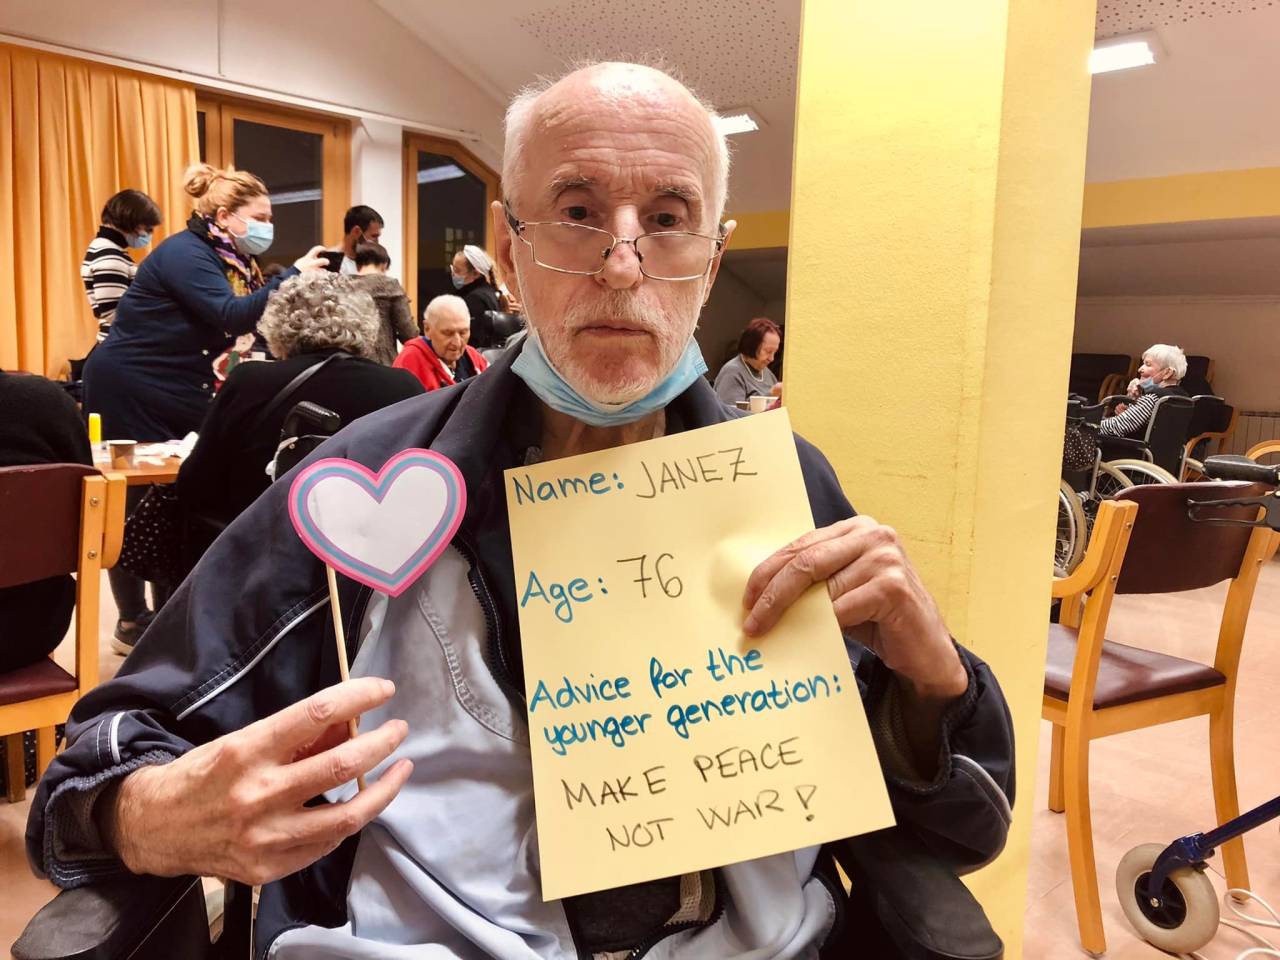 Name: JANEZ
Age: 76
Advice for the
younger generation:
MAKE PEACE
NOT WAR!